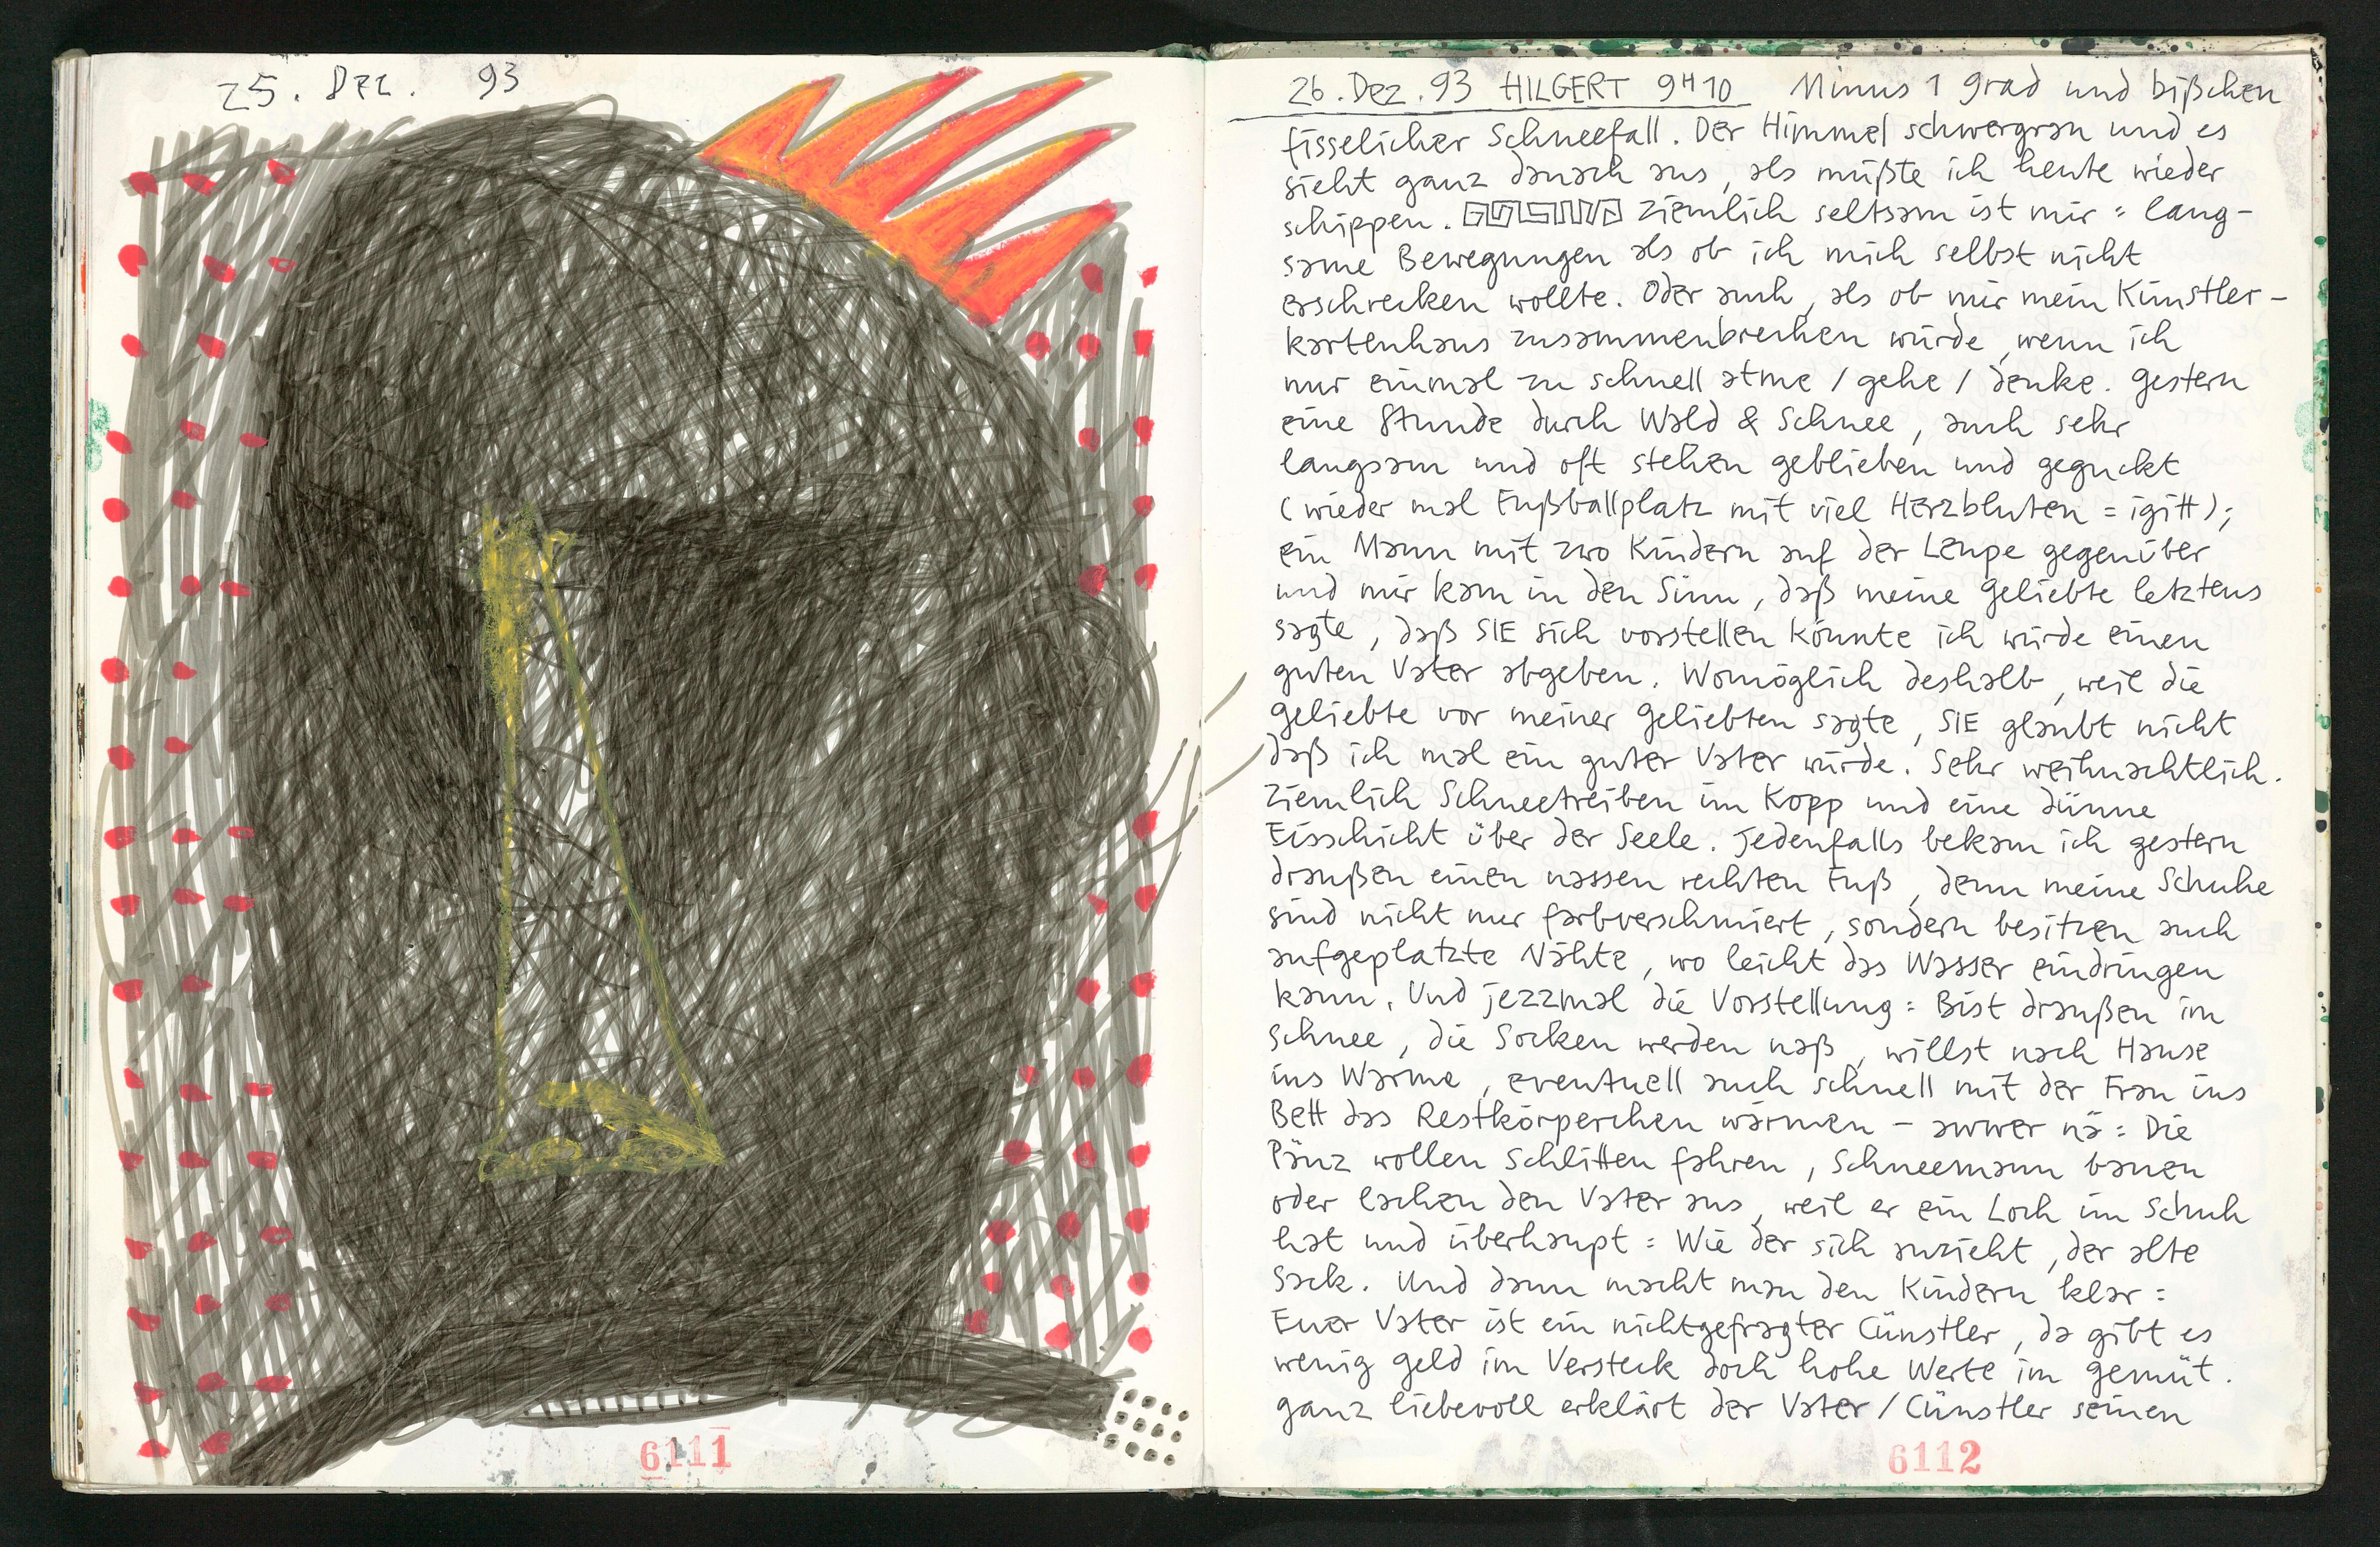 25. Dez. 93
6111
26. Dez. 93 HILGERT 9H10 Minus 1 Grad und bißchen
fisselicher Schneefall. Der Himmel schwergrau und es
sieht ganz danach aus, als müßte ich heute wieder
schippen. Ziemlich seltsam ist mir: lang-
same Bewegungen als ob ich mich selbst nicht
erschrecken wollte. Oder auch, als ob mir mein Künstler-
kartenhaus zusammenbrechen würde, wenn ich
nur einmal zu schnell atme / gehe / denke. Gestern
eine Stunde durch Wald & Schnee, auch sehr
langsam und oft stehen geblieben und geguckt
(wieder mal Fußballplatz mit viel Herzbluten = igitt);
ein Mann mit zwo Kindern auf der Leupe gegenüber
und mir kam in den Sinn, daß meine Geliebte letztens
sagte, daß SIE sich vorstellen könnte ich würde einen
guten Vater abgeben. Womöglich deshalb, weil die
Geliebte vor meiner Geliebten sagte, SIE glaubt nicht
daß ich mal ein guter Vater würde. Sehr weihnachtlich.
Ziemlich Schneetreiben im Kopp und eine dünne
Eisschicht über der Seele. Jedenfalls bekam ich gestern
draußen einen nassen rechten Fuß, denn meine Schuhe
sind nicht nur farbverschmiert, sondern besitzen auch
aufgeplatzte Nähte, wo leicht das Wasser eindringen
kann. Und jezzmal die Vorstellung: Bist draußen im
Schnee, die Socken werden naß, willst nach Hause
ins Warme, eventuell auch schnell mit der Frau ins
Bett das Restkörperchen wärmen - awwer nä: Die
Pänz wollen Schlitten fahren, Schneemann bauen
oder lachen den Vater aus, weil er ein Loch im Schuh
hat und überhaupt: Wie der sich anzieht, der alte
Sack. Und dann macht man den Kindern klar:
Euer Vater ist ein nichtgefragter Cünstler, da gibt es
wenig Geld im Versteck doch hohe Werte im Gemüt.
Ganz liebevoll erklärt der Vater / Cünstler seinen
6112